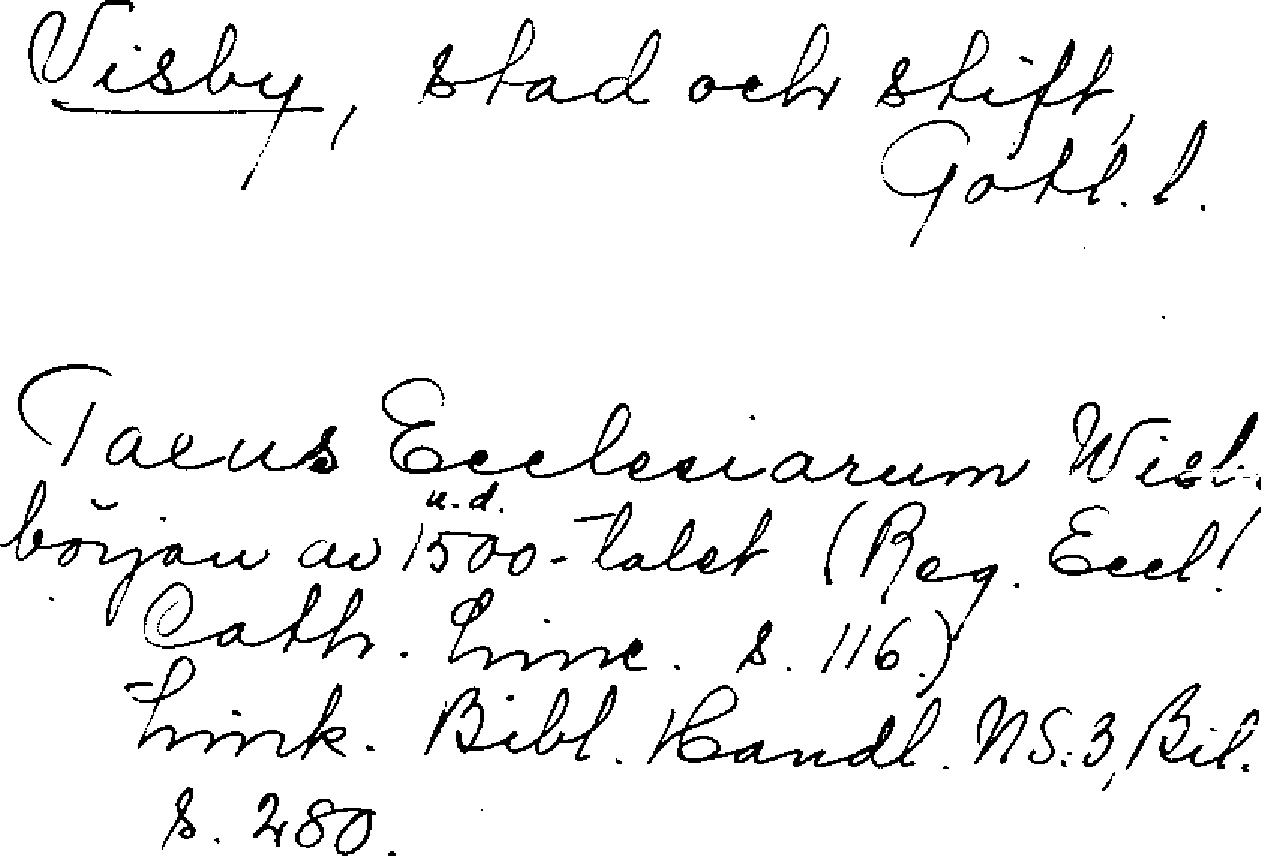 Visby, stad och stift,
Gotl. l.
Taxus Ecclesiarum Wisb.
u.d.
början av 1500-talet (Reg. Eccl.
Cath. Linc. s. 116.)
Link. Bibl. Handl. NS:3, Bil.
s. 280.